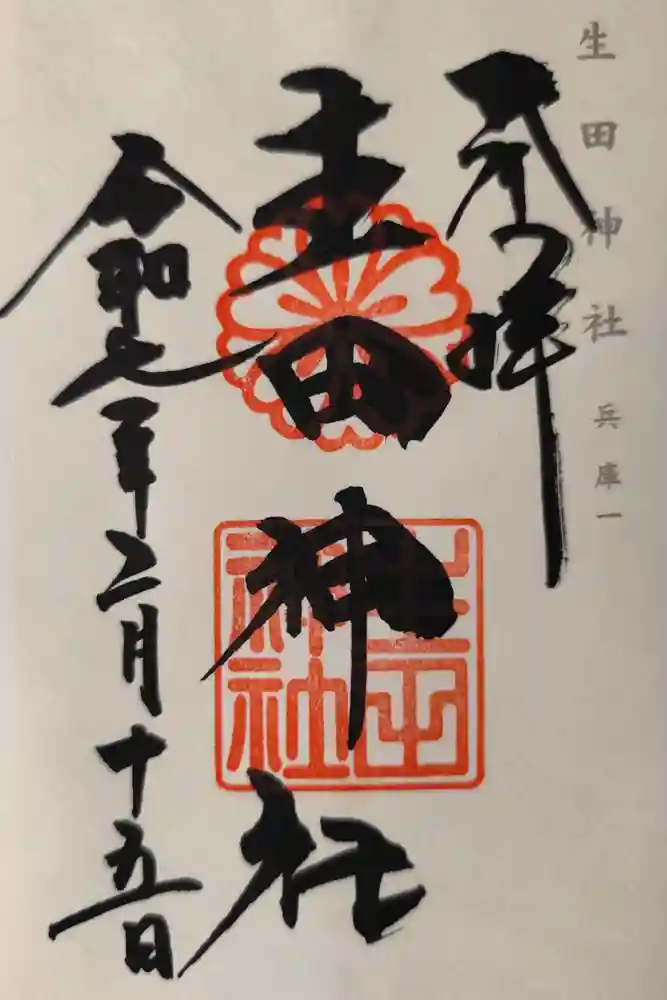 生田神社 兵庫一
奉拝
生田神社
生田神社
令和七年二月十五日